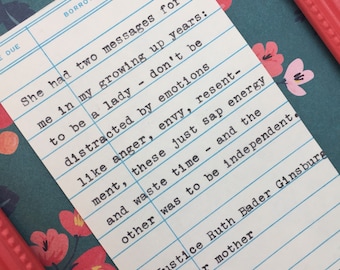 DUE
She had two messages for
me in my growing up years:
to be a lady - don't be
distracted by emotions
like anger, envy, resent-
ment, these just sap energy
and waste time - and the
other was to be independent.
Justice Ruth Bader Ginsburg
mother